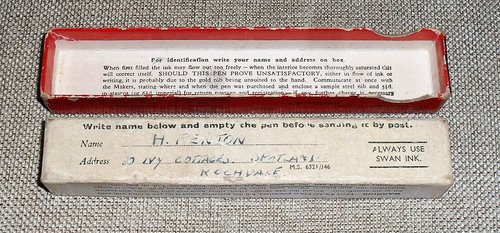 For identification write your name and address on box.
When first filled the ink may flow out too freely—when the interior becomes thoroughly saturated this
will correct itself. SHOULD THIS PEN PROVE UNSATISFACTORY, either in flow of ink or
writing, it is probably due to the gold nib being unsuited to the hand. Communicate at once with
the Makers, stating where and when the pen was purchased and enclose a sample steel nib and
in stamps (or imperial) for return postage and registration—if any further charge is necessary
Write name below and empty the pen before sending it by post.
Name H. FENTON
Address IVY COTTAGES.
ROCHDALE.
M.S. 6321/146
ALWAYS USE
SWAN INK.